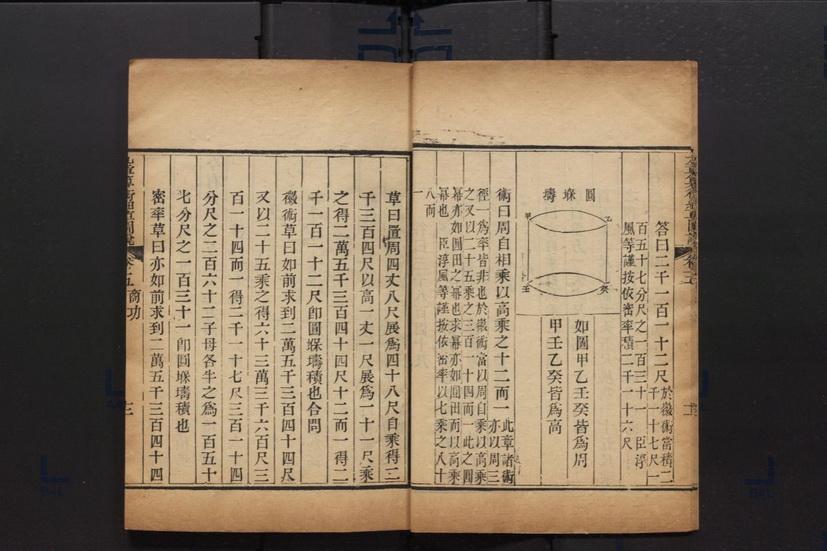 答曰二千一百一十二尺於徽術當積二千一十七尺一
百五十七分尺之一百三十一臣淳
風等謹按依密率積二千一十六尺
圓垛壔
甲
乙
壬
癸
如圖甲乙壬癸皆爲周
甲壬乙癸皆爲高
術曰周自相乘以高乘之十二而一此章諸術亦以周三
徑一爲率皆非也於徽術當以周自乘以高乘
之又以二十五乘之三百一十四而一此之圓
冪亦如圓田之冪也求冪亦如圓田而以高乘
冪也臣淳風等謹按依密率以七乘之八十
八而
一
草曰置周四丈八尺展爲四十八尺自乘得二
千三百四尺以高一丈一尺展爲一十一尺乘
之得二萬五千三百四十四尺十二而一得二
千一百一十二尺卽圓垛壔積也合問
徽術草曰如前求到二萬五千三百四十四尺
又以二十五乘之得六十三萬三千六百尺三
百一十四而一得二千一十七尺三百一十四
分尺之二百六十二子母各半之爲一百五十
七分尺之一百三十一卽圓垛壔積也
密率草曰亦如前求到二萬五千三百四十四
九章算術細草圖說
卷五 商功